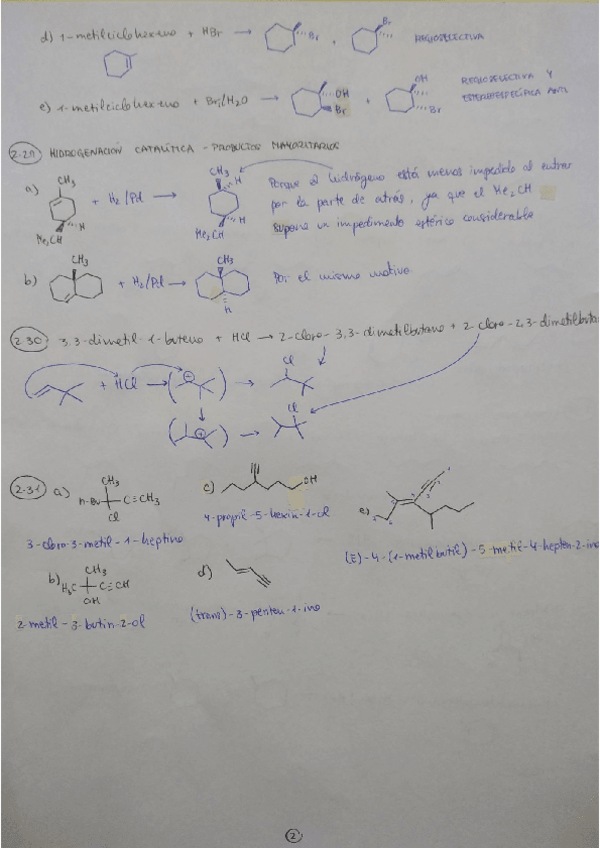 d) 1-metilciclohexeno + HBr → Br , Br REGIOSELECTIVA
e) 1-metilciclohexeno + Br₂/H₂O → OH Br + OH Br REGIOSELECTIVA Y
ESTEREOESPECÍFICA ANTI
2-29 HIDROGENACIÓN CATALÍTICA - PRODUCTOS MAYORITARIOS
a) CH₃ H Me₂CH + H₂/Pd → CH₃ H H Me₂CH Porque el hidrógeno está menos impedido al entrar
por la parte de atrás, ya que el Me₂CH
supone un impedimento estérico considerable
b) CH₃ + H₂/Pd → CH₃ H Por el mismo motivo
2-30 3,3-dimetil-1-buteno + HCl → 2-cloro-3,3-dimetilbutano + 2-cloro-2,3-dimetilbuta
+ HCl → ( ⊕ ) → Cl
( ⊕ ) → Cl
2-31 a) CH₃ n-Bu C≡CH₃ Cl
3-cloro-3-metil-1-heptino
b) CH₃ H₃C C≡CH OH
2-metil-3-butin-2-ol
c) OH
4-propil-5-hexin-1-ol
d)
(trans)-3-penten-1-ino
e)
(E)-4-(1-metilbutil)-5-metil-4-hepten-2-ino
2